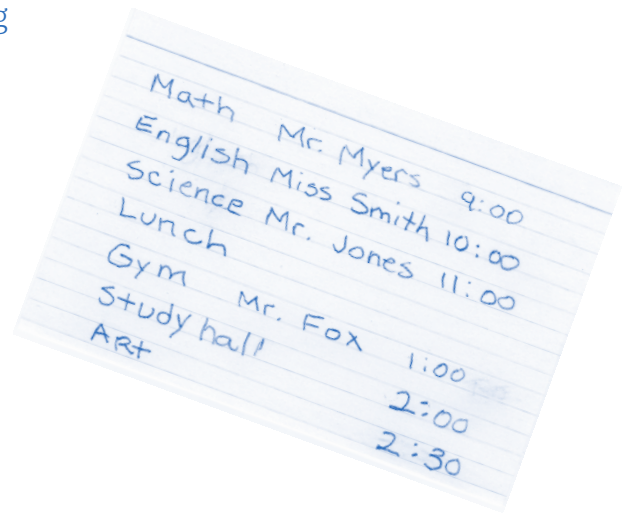 g
Math Mr. Myers 9:00
English Miss Smith 10:00
Science Mr. Jones 11:00
Lunch
Gym Mr. Fox 1:00
Study hall 2:00
ARt 2:30